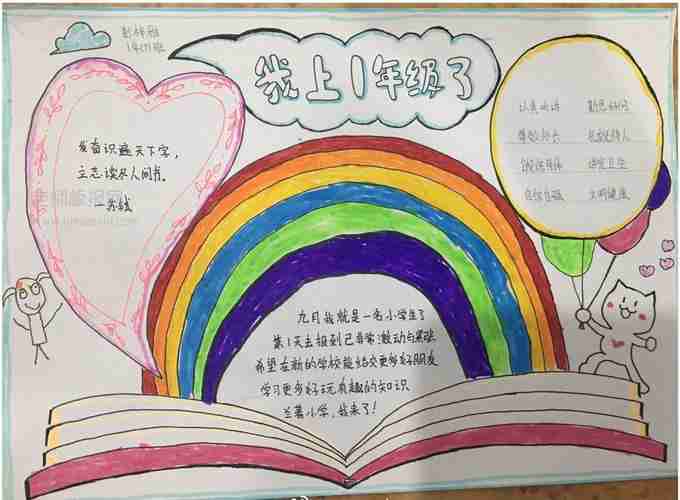 我上1年级了
发奋识遍天下字,
立志读尽人间书。
—苏轼
认真听讲 勤思好问
尊敬师长 礼貌待人
诚实自律 讲究卫生
自信自强 文明健康
九月我就是一名小学生了
第1天去报到已非常激动与紧张
希望在新的学校能结交更多好朋友
学习更多好玩有趣的知识
兰著小学,我来了!
老师板报网